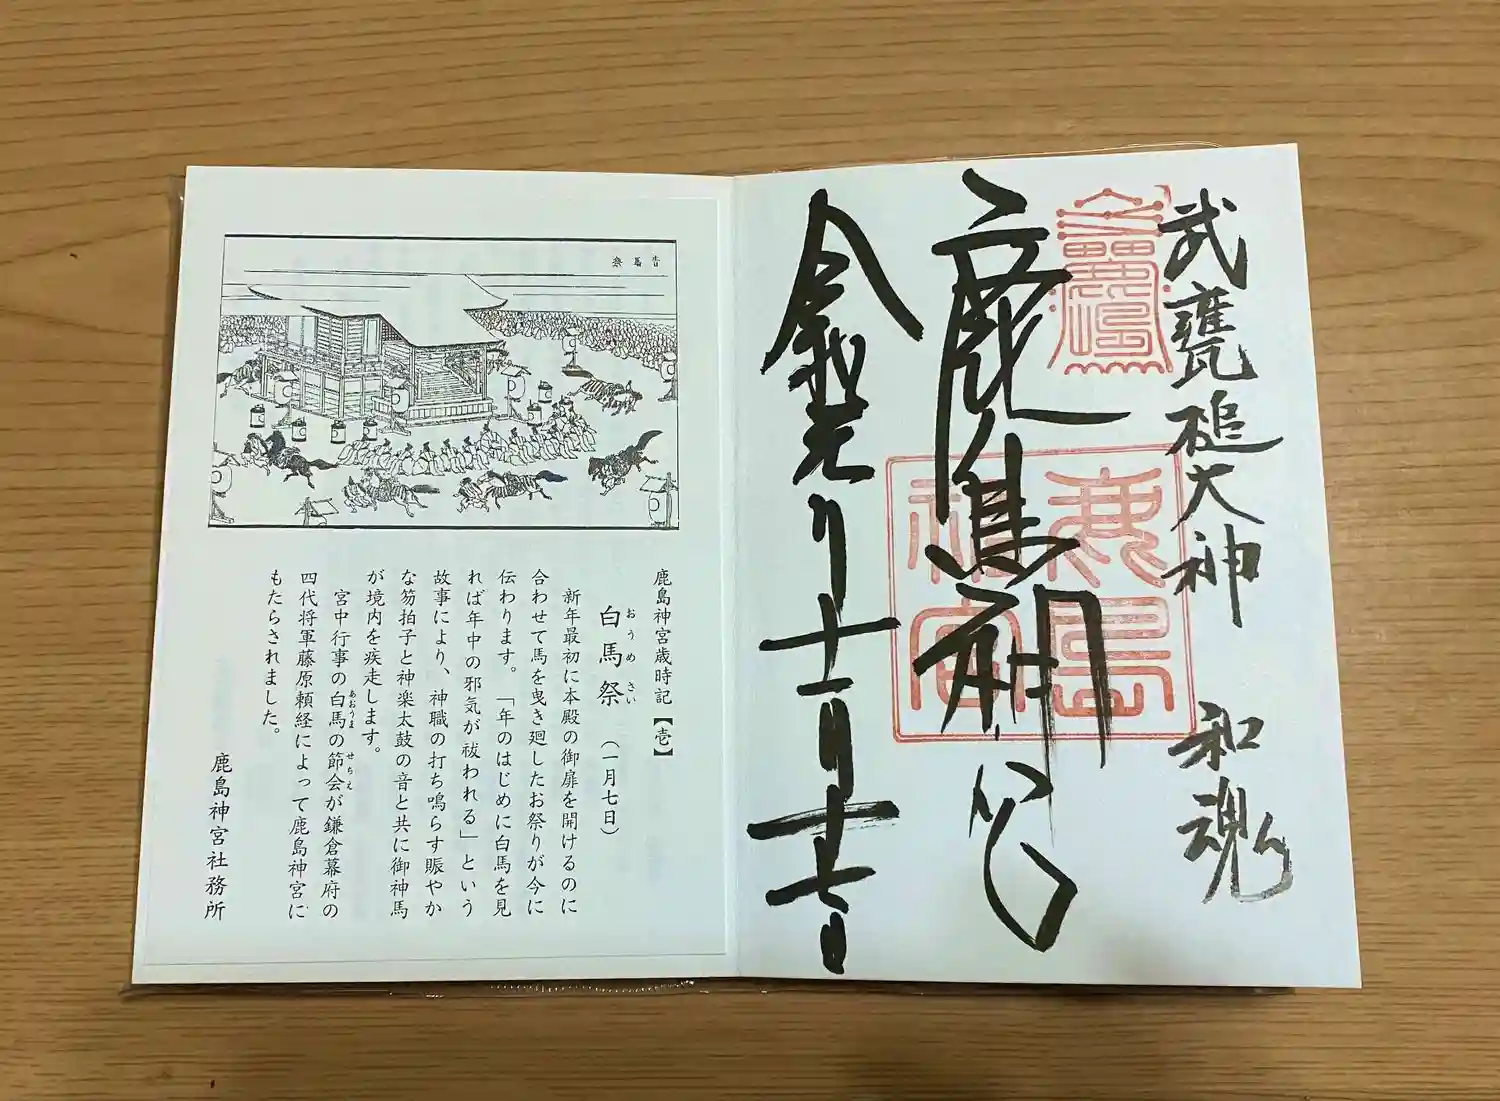 武甕槌大神 和魂
鹿島神宮
鹿島神宮
令和元年十一月十七日
青馬祭
鹿島神宮歳時記【壱】
白馬祭(おうめさい)(一月七日)
新年最初に本殿の御扉を開けるのに
合わせて馬を曳き廻したお祭りが今に
伝わります。「年のはじめに白馬を見
れば年中の邪気が祓われる」という
故事により、神職の打ち鳴らす賑やか
な笏拍子と神楽太鼓の音と共に御神馬
が境内を疾走します。
宮中行事の白馬(あおうま)の節会(せちえ)が鎌倉幕府の
四代将軍藤原頼経によって鹿島神宮に
もたらされました。
鹿島神宮社務所